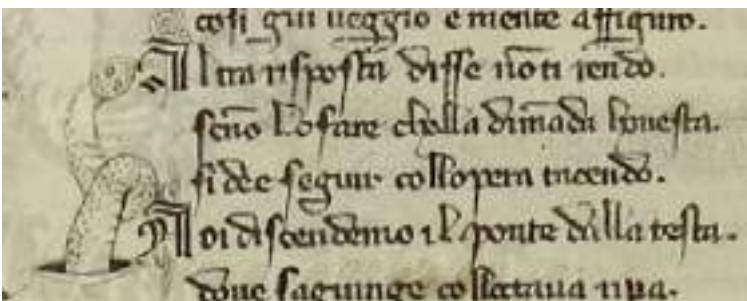 cosi giu ueggio e niente affiguro.
Altra risposta disse nōti rendo.
senō lo fare cholla dimāda honesta.
si dee seguir collopera tacendo.
Noi discendemo il ponte dalla testa.
doue sagiunge collottaua ripa.